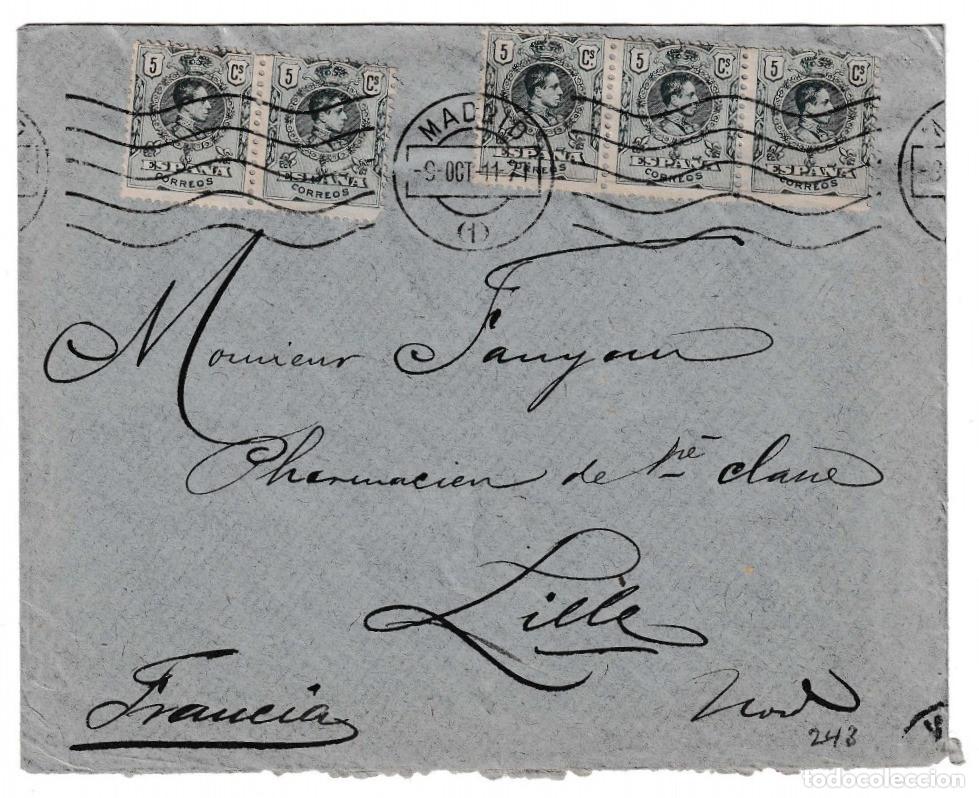 5 Cs 5 Cs 5 Cs 5 Cs 5 Cs
ESPAÑA ESPAÑA ESPAÑA ESPAÑA ESPAÑA
CORREOS CORREOS CORREOS CORREOS CORREOS
MADRID
-9·OCT 11-7T
(1)
Monsieur Fanyau
Pharmacien de 1re classe
Lille
Francia
Nord
243
todocoleccion